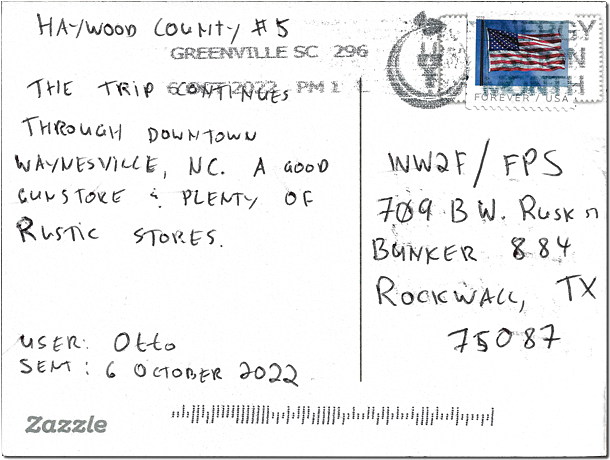 HAYWOOD COUNTY #5
GREENVILLE SC 296
6 OCT 2022 PM 1 L
THE TRIP CONTINUES
THROUGH DOWNTOWN
WAYNESVILLE, NC. A GOOD
GUNSTORE & PLENTY OF
RUSTIC STORES.
USER: Otto
SENT: 6 OCTOBER 2022
Zazzle
ENERGY
MONTH
FOREVER / USA
WW2F / FPS
709 B W. RUSK
BUNKER 884
ROCKWALL, TX
75087